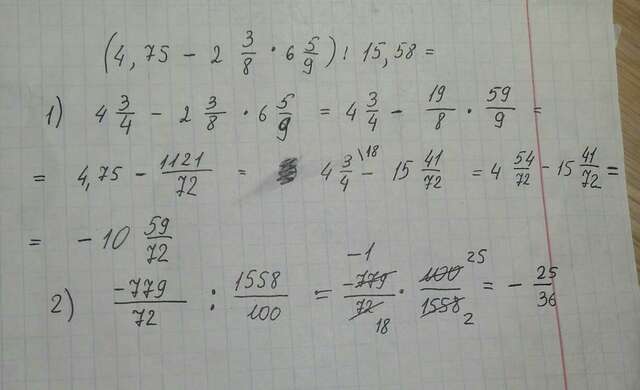 (4,75 - 2 3/8 · 6 5/9) : 15,58 =
1) 4 3/4 - 2 3/8 · 6 5/9 = 4 3/4 - 19/8 · 59/9 =
= 4,75 - 1121/72 = 4 3/4 \18 - 15 41/72 = 4 54/72 - 15 41/72 =
= -10 59/72
2) -779/72 : 1558/100 = -779/72 · 100/1558 = - 25/36
-1 25
18 2